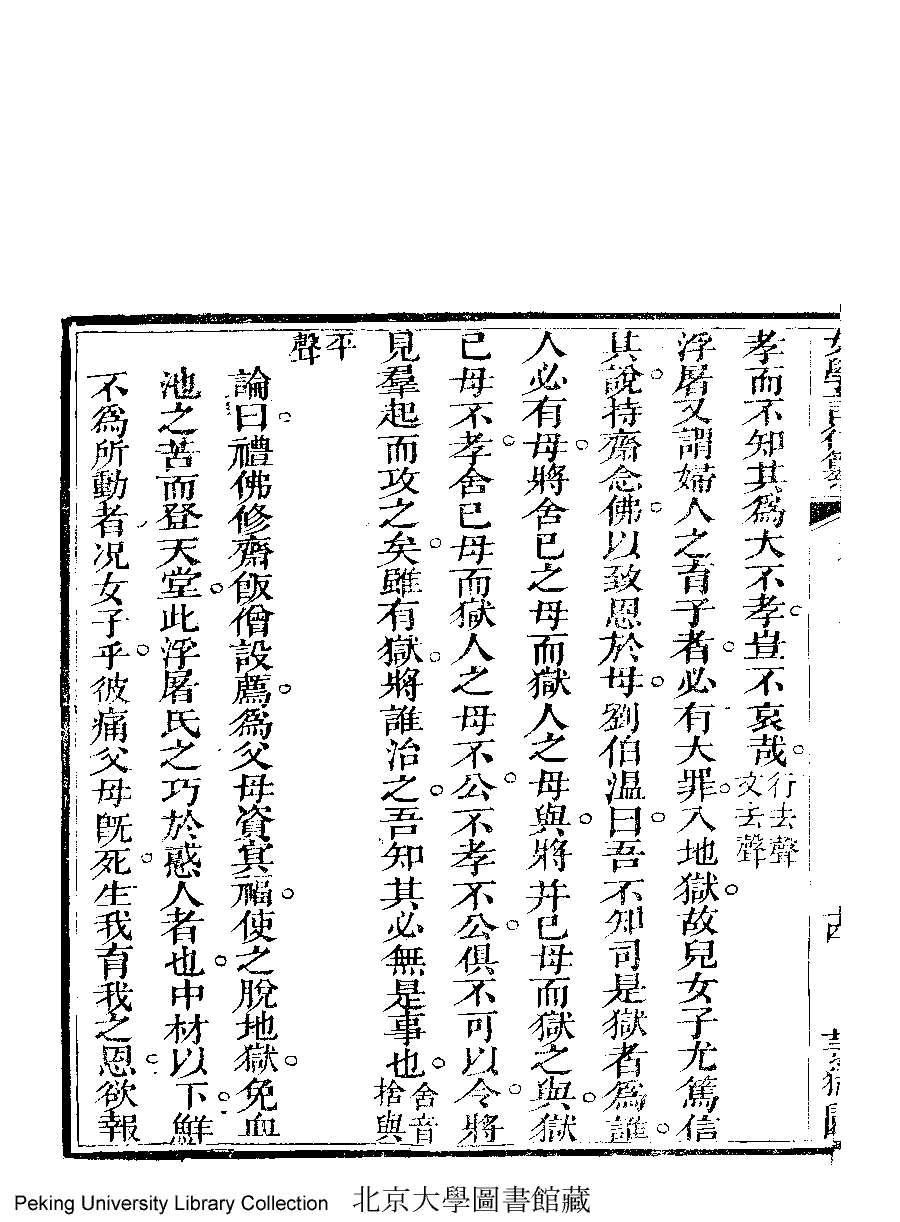 孝而不知其爲大不孝。豈不哀哉。行去聲文去聲
浮屠又謂婦人之育子者。必有大罪。入地獄。故兒女子尤篤信
其說。持齋念佛。以致恩於母。劉伯温曰。吾不知司是獄者爲誰。
人必有母。將舍已之母而獄人之母與。將并已母而獄之與。獄
已母不孝。舍已母而獄人之母不公。不孝不公。俱不可以令。將
見羣起而攻之矣。雖有獄。將誰治之。吾知其必無是事也。舍音捨與
平聲
論曰。禮佛修齋飯僧設薦。爲父母資冥福。使之脫地獄。免血
池之苦而登天堂。此浮屠氏之巧於惑人者也。中材以下。鮮
不爲所動者。况女子乎。彼痛父母旣死。生我育我之恩。欲報
Peking University Library Collection 北京大學圖書館藏